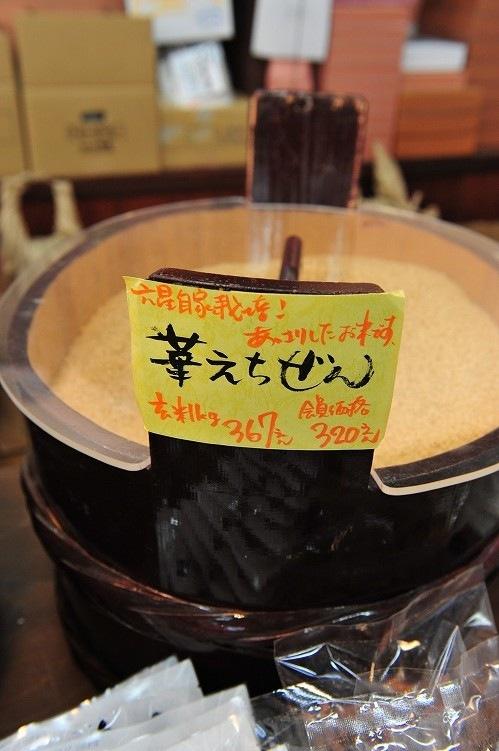 六星自家栽培!
あっさりしたお米です、
華えちぜん
玄米1kg 367えん 会員価格 320えん